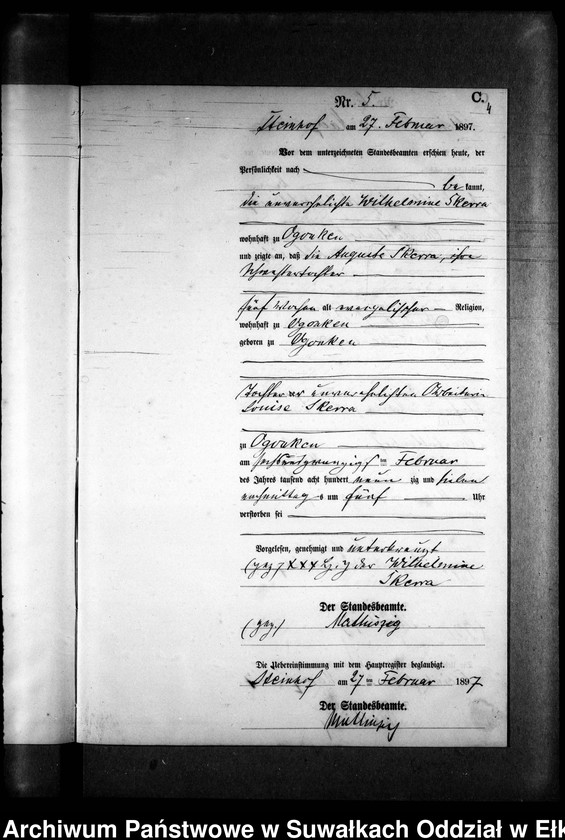 C.
4
Nr. 5.
Steinhof am 27. Februar 1897.
Vor dem unterzeichneten Standesbeamten erschien heute, der
Persönlichkeit nach
be kannt,
die unverehelichte Wilhelmine Skerra
wohnhaft zu Ogonken
und zeigte an, daß die Auguste Skerra, ihre
Schwestertochter
fünf Wochen alt evangelischer Religion,
wohnhaft zu Ogonken
geboren zu Ogonken
Tochter der unverehelichten Arbeiterin
Louise Skerra
zu Ogonken
am sechsundzwanzigsten Februar
des Jahres tausend acht hundert neun zig und sieben
nachmittag s um fünf Uhr
verstorben sei
Vorgelesen, genehmigt und unterkreuzt
(gez) XXX Hz. der Wilhelmine
Skerra
Der Standesbeamte.
(gez.) Mathiszig
Die Uebereinstimmung mit dem Hauptregister beglaubigt.
Steinhof am 27ten Februar 1897
Der Standesbeamte.
Mathiszig
Archiwum Państwowe w Suwałkach Oddział w Ełk